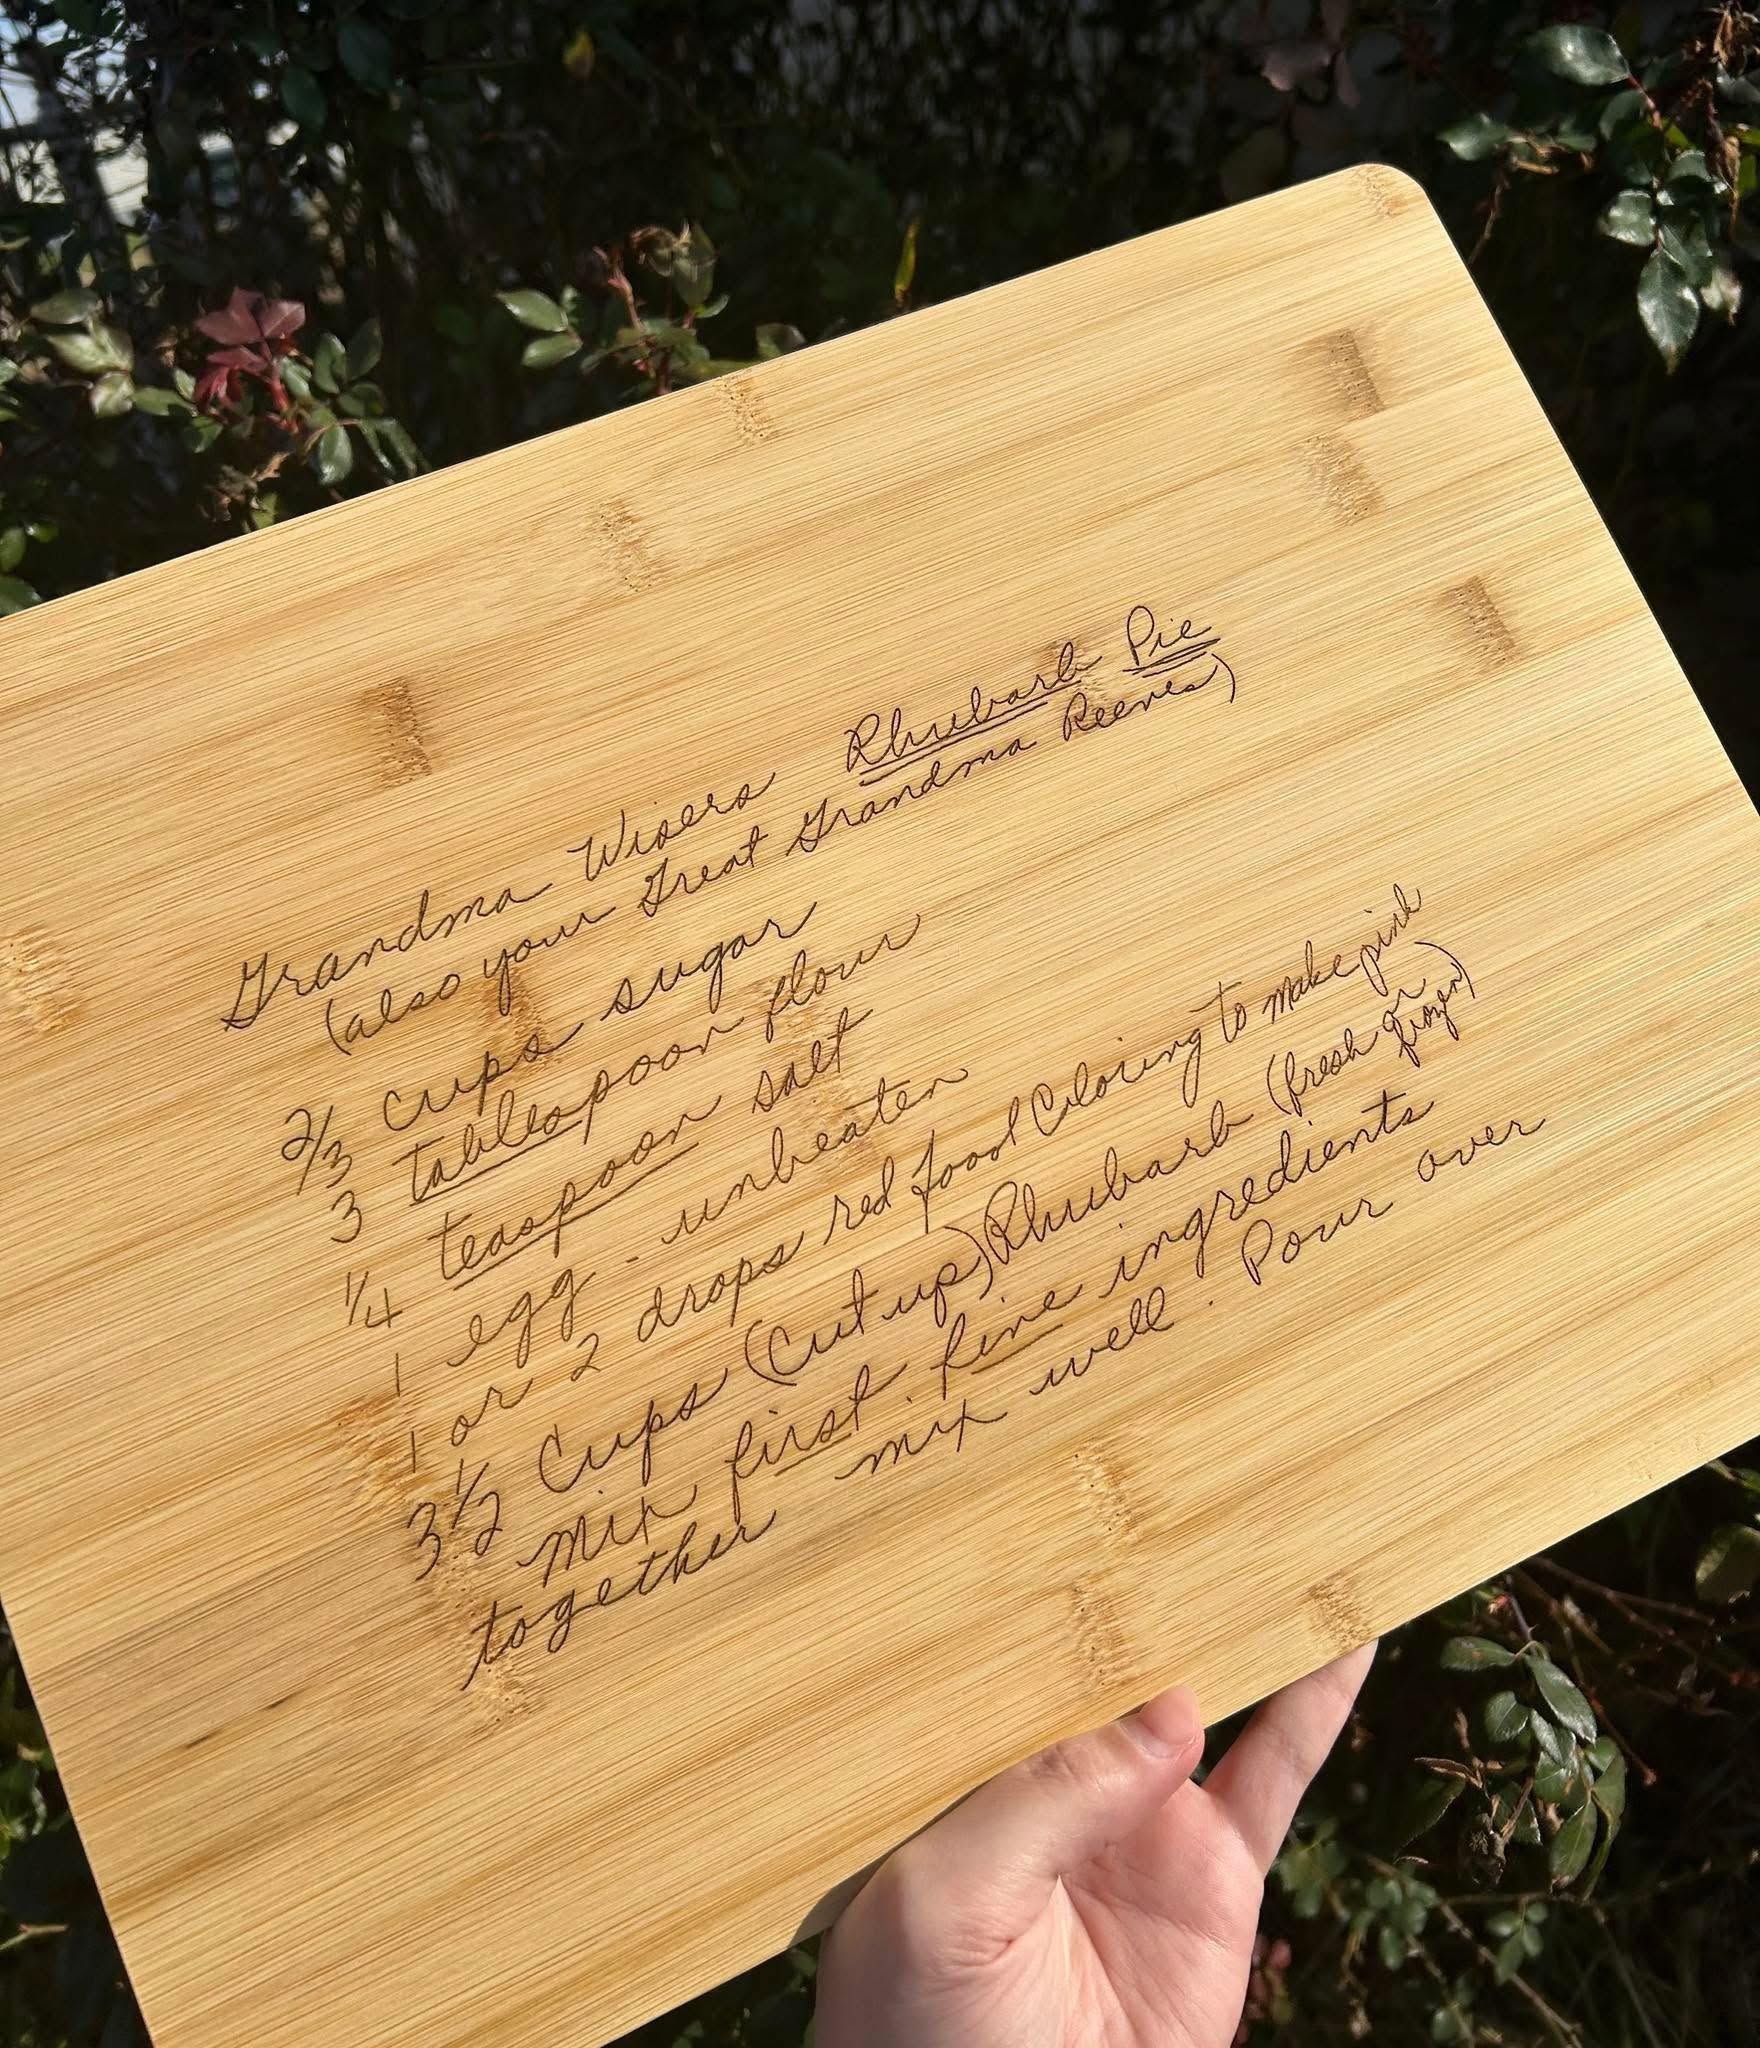 Grandma Wisers Rhubarb Pie
(also your Great Grandma Reeves)
2/3 cups sugar
3 tablespoon flour
1/4 teaspoon salt
1 egg - unbeaten
1 or 2 drops red food coloring to make pink
3 1/2 Cups (Cut up) Rhubarb (fresh or frozen)
Mix first five ingredients
together mix well. Pour over